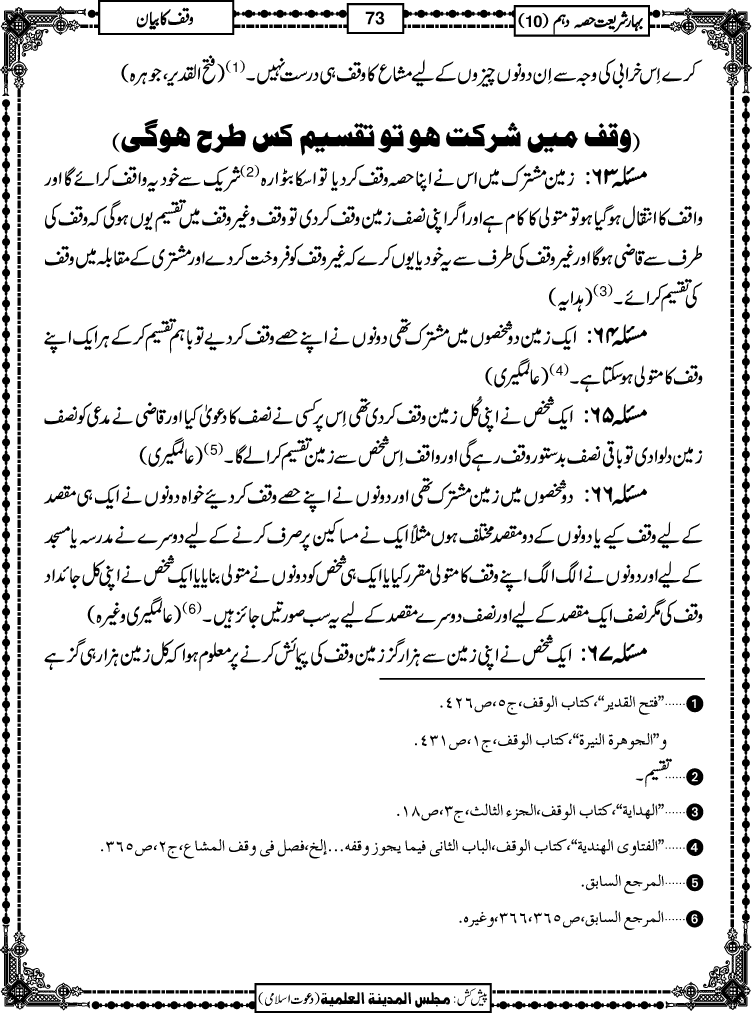 بہارِ شریعت حصہ دہم (10)
73
وقف کا بیان
کرے اِس خرابی کی وجہ سے اِن دونوں چیزوں کے لیے مشاع کا وقف ہی درست نہیں۔(1) (فتح القدیر، جوہرہ)
(وقف میں شرکت ہو تو تقسیم کس طرح ہوگی)
مسئلہ ۶۳: زمین مشترک میں اس نے اپنا حصہ وقف کردیا تو اسکا بٹوارہ(2) شریک سے خود یہ واقف کرائے گا اور
واقف کا انتقال ہوگیا ہو تو متولی کا کام ہے اور اگر اپنی نصف زمین وقف کردی تو وقف وغیر وقف میں تقسیم یوں ہوگی کہ وقف کی
طرف سے قاضی ہوگا اور غیر وقف کی طرف سے یہ خود یا یوں کرے کہ غیر وقف کو فروخت کردے اور مشتری کے مقابلہ میں وقف
کی تقسیم کرائے۔(3) (ہدایہ)
مسئلہ ۶۴: ایک زمین دو شخصوں میں مشترک تھی دونوں نے اپنے حصے وقف کردیے تو باہم تقسیم کرکے ہر ایک اپنے
وقف کا متولی ہوسکتا ہے۔(4) (عالمگیری)
مسئلہ ۶۵: ایک شخص نے اپنی کُل زمین وقف کردی تھی اِس پر کسی نے نصف کا دعویٰ کیا اور قاضی نے مدعی کو نصف
زمین دلوادی تو باقی نصف بدستور وقف رہے گی اور واقف اِس شخص سے زمین تقسیم کرالے گا۔(5) (عالمگیری)
مسئلہ ۶۶: دو شخصوں میں زمین مشترک تھی اور دونوں نے اپنے حصے وقف کردیئے خواہ دونوں نے ایک ہی مقصد
کے لیے وقف کیے یا دونوں کے دو مقصد مختلف ہوں مثلاً ایک نے مساکین پر صرف کرنے کے لیے دوسرے نے مدرسہ یا مسجد
کے لیے اور دونوں نے الگ الگ اپنے وقف کا متولی مقرر کیا یا ایک ہی شخص کو دونوں نے متولی بنایا یا ایک شخص نے اپنی کل جائداد
وقف کی مگر نصف ایک مقصد کے لیے اور نصف دوسرے مقصد کے لیے یہ سب صورتیں جائز ہیں۔(6) (عالمگیری وغیرہ)
مسئلہ ۶۷: ایک شخص نے اپنی زمین سے ہزار گز زمین وقف کی پیمائش کرنے پر معلوم ہوا کہ کل زمین ہزار ہی گز ہے
1 ......"فتح القدیر"، کتاب الوقف، ج٥، ص٤٢٦.
و"الجوهرة النيرة"، کتاب الوقف، ج١، ص٤٣١.
2 ......تقسیم۔
3 ......"الهداية"، کتاب الوقف، الجزء الثالث، ج٣، ص١٨.
4 ......"الفتاوى الهندية"، کتاب الوقف، الباب الثانی فیما یجوز وقفه...إلخ، فصل فی وقف المشاع، ج٢، ص٣٦٥.
5 ......المرجع السابق.
6 ......المرجع السابق، ص٣٦٥، ٣٦٦، وغیرہ.
پیش کش: مجلس المدينة العلمية (دعوت اسلامی)